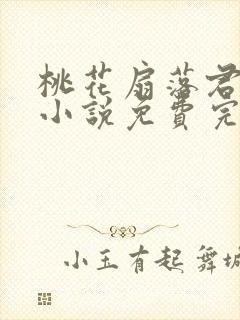 桃花扇落君
小说免費完
小玉有起舞城